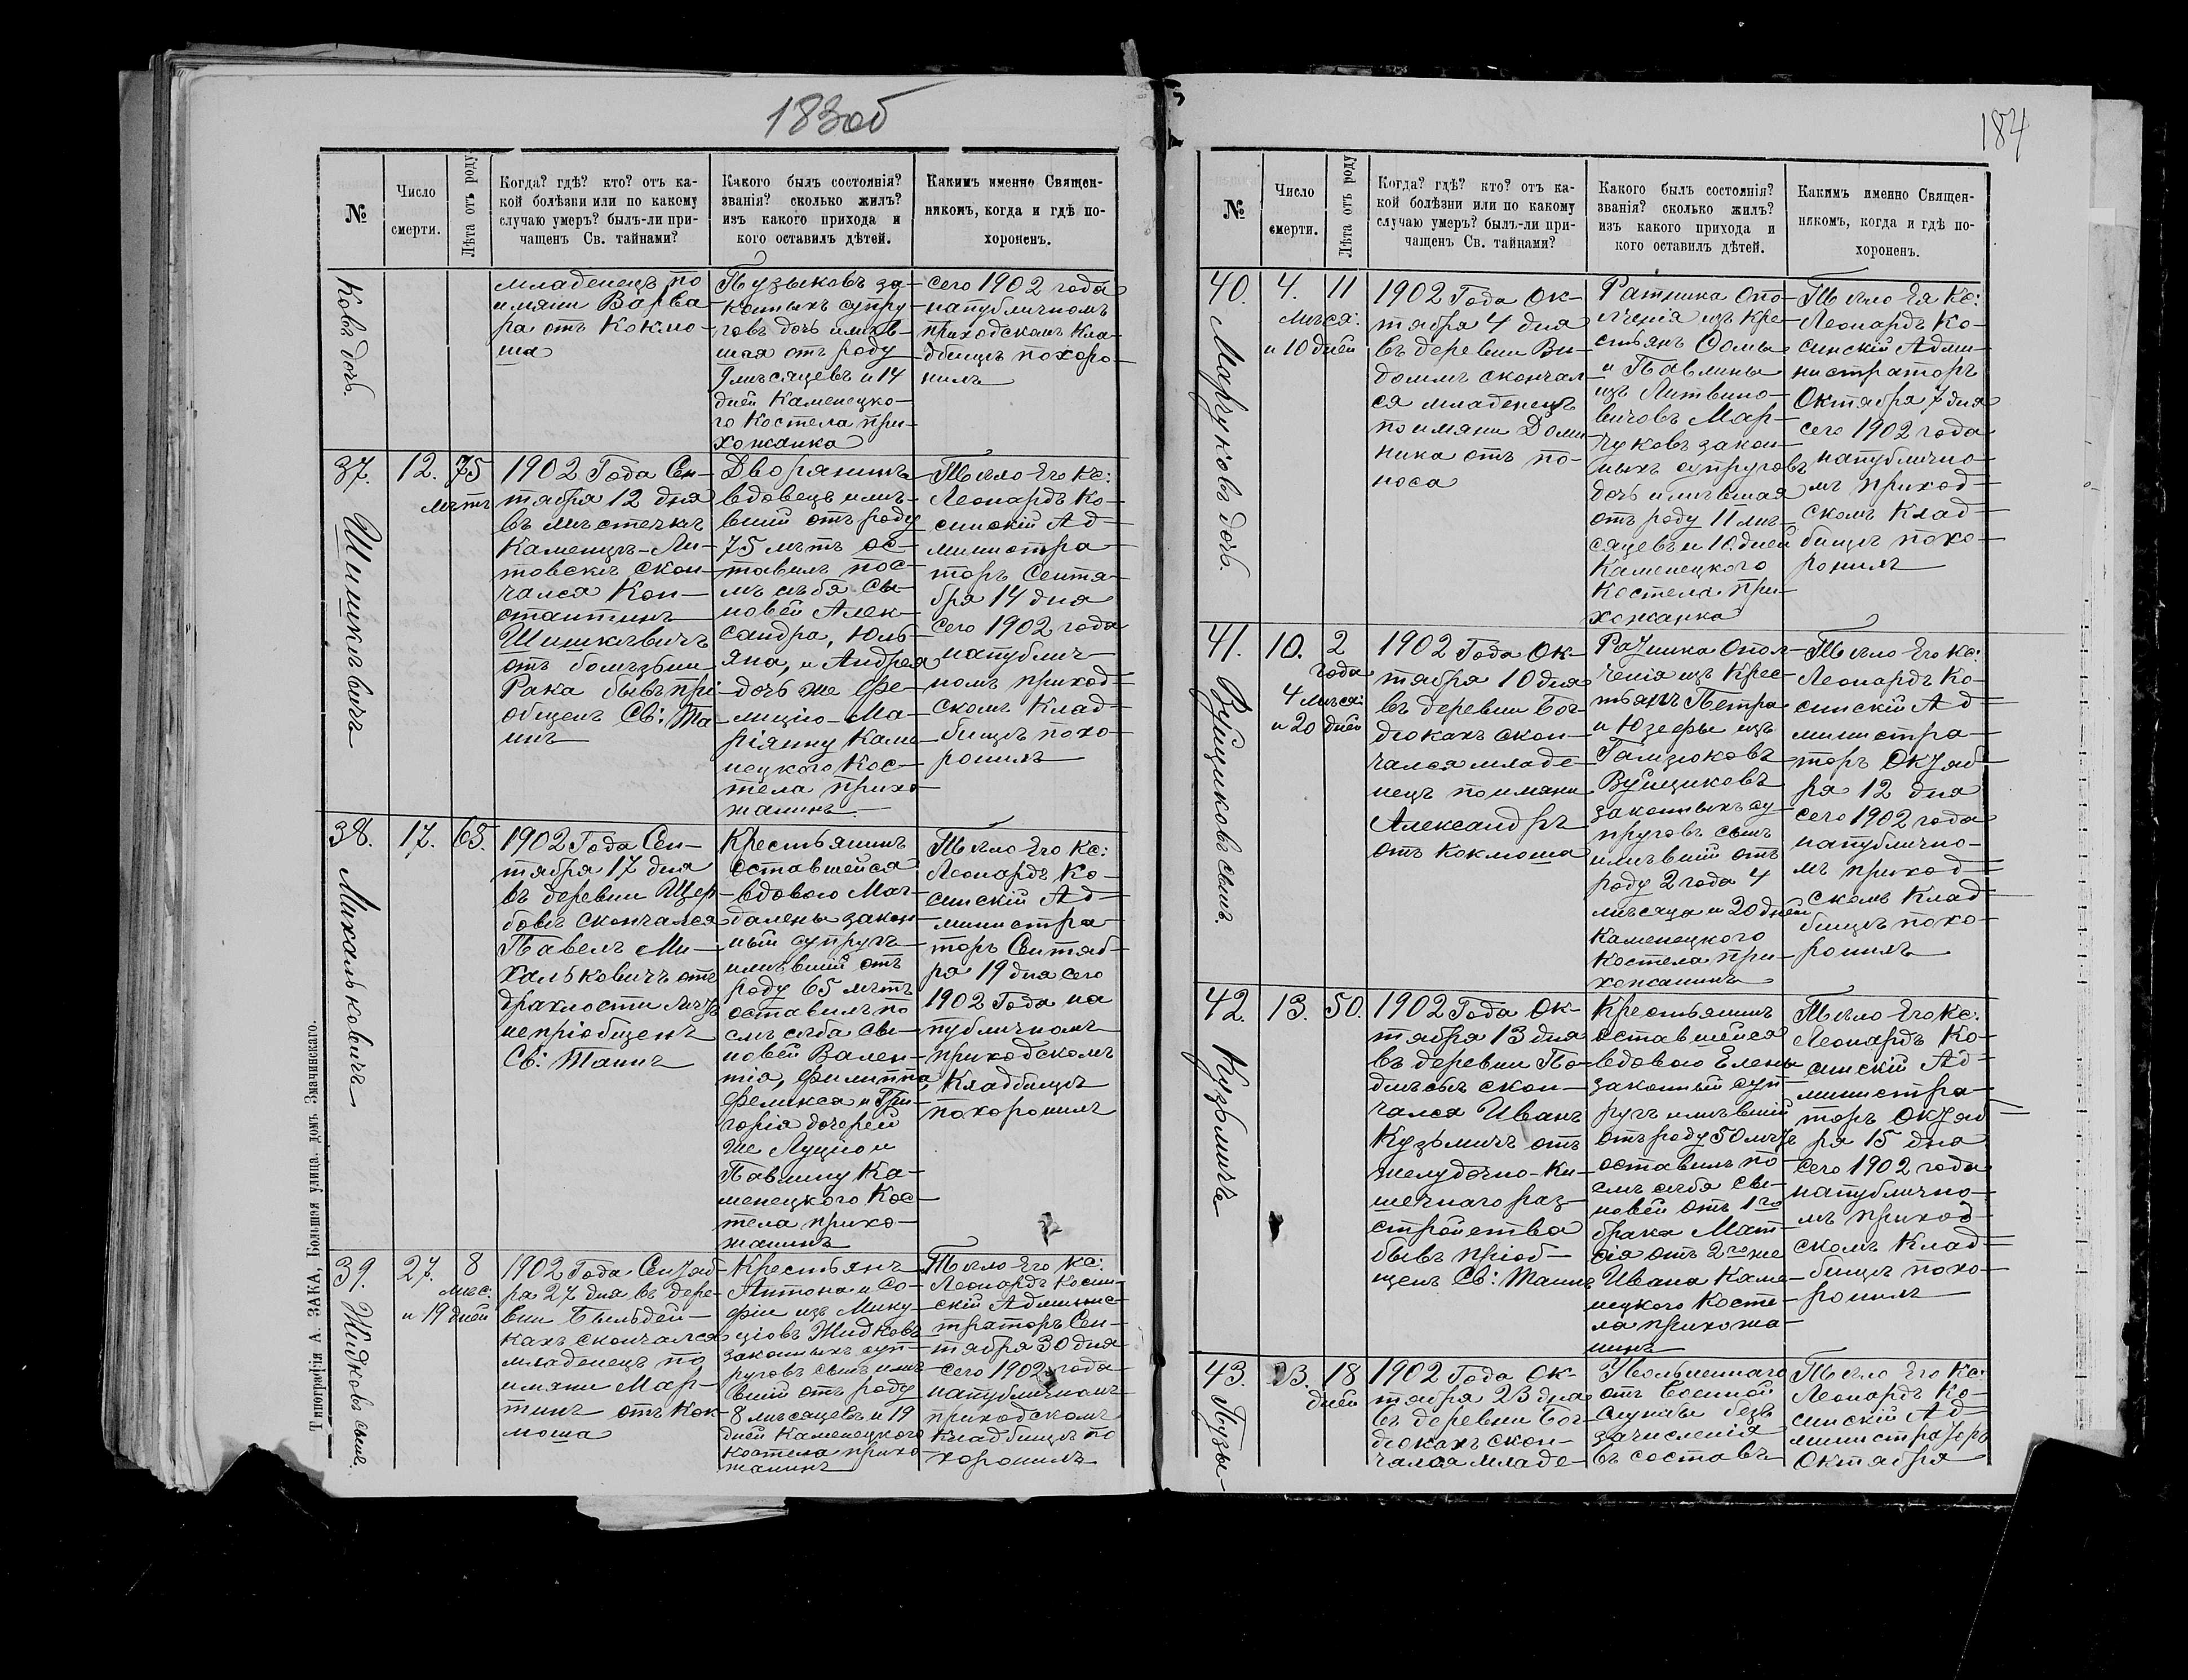 183об
№
Число
смерти.
Лѣта отъ роду
Когда? гдѣ? кто? отъ ка-
кой болѣзни или по какому
случаю умеръ? былъ-ли при-
чащенъ Св. тайнами?
Какого былъ состоянія?
званія? сколько жилъ?
изъ какого прихода и
кого оставилъ дѣтей.
Какимъ именно Священ-
никомъ, когда и гдѣ по-
хороненъ.
ковъ дочь.
младенецъ по
имяни Варва-
ра отъ Коклю-
ша
Пузыковъ за-
конныхъ супру-
говъ дочь имѣв-
шая отъ роду
9 мѣсяцевъ и 14
дней Каменецко-
го Костела при-
хожанка
сего 1902 года
на публичномъ
приходскомъ Кла-
дбищѣ похоро-
нилъ
37.
Шишкевичъ
12.
75
лѣтъ
1902 Года Сен-
тября 12 дня
въ мѣстечкѣ
Каменцѣ-Ли-
товскѣ скон-
чался Кон-
стантинъ
Шишкевичъ
отъ болѣзни
Рака бывъ прі-
общенъ Св: Та-
инъ
Дворянинъ
вдовецъ имѣ-
вшій отъ роду
75 лѣтъ ос-
тавилъ пос-
лѣ себя сы-
новей Алек-
сандра, Юль-
яна, и Андрея
дочь же Фе-
лицію-Ма-
ріянну Каме-
нецкого Кос-
тела прихо-
жанинъ.
Тѣло Его Кс:
Леонардъ Ко-
синскій Ад-
министра-
торъ Сентя-
бря 14 дня
сего 1902 года
на публич-
номъ приход-
скомъ Клад-
бищѣ похо-
ронилъ
38.
Михальковичъ
17.
65.
1902 Года Сен-
тября 17 дня
въ деревни Щер-
бовѣ скончался
Павелъ Ми-
хальковичъ отъ
драхлости лѣтъ
непріобщенъ
Св: Таинъ
Крестьянинъ
оставшейся
вдовою Маг-
далены закон-
ный супругъ
имѣвшій отъ
роду 65 лѣтъ
оставилъ по-
слѣ себя сы-
новей Вален-
тія, Филиппа,
Феликса и Гри-
горія дочерей
же Луцію и
Павлину Ка-
менецкого Кос-
тела прихо-
жанинъ
Тѣло Его Кс:
Леонардъ Ко-
синскій Ад-
министра-
торъ Сентяб-
ря 19 дня сего
1902 Года на
публичномъ
приходскомъ
Кладбищѣ
похоронилъ
39.
Жидковъ сынъ.
27.
8
мѣс:
и 19 дней
1902 Года Сентяб-
ря 27 дня въ дере-
вни Бильдей-
кахъ скончался
младенецъ по
имяни Мар-
тинъ отъ Кок-
люша
Крестьянъ
Антона и Со-
фіи изъ Мику-
ціовъ Жидковъ
законныхъ суп-
руговъ сынъ имѣ-
вшій отъ роду
8 мѣсяцевъ и 19
дней Каменецкого
Костела прихо-
жанинъ
Тѣло Его Кс:
Леонардъ Косин-
скій Админис-
траторъ Сен-
тября 30 дня
сего 1902 года
на публичномъ
приходскомъ
Кладбищѣ по-
хоронилъ
Типографія А. ЗАКА, Большая улица, домъ Значинскаго.
184
№
Число
смерти.
Лѣта отъ роду
Когда? гдѣ? кто? отъ ка-
кой болѣзни или по какому
случаю умеръ? былъ-ли при-
чащенъ Св. тайнами?
Какого былъ состоянія?
званія? сколько жилъ?
изъ какого прихода и
кого оставилъ дѣтей.
Какимъ именно Священ-
никомъ, когда и гдѣ по-
хороненъ.
40.
Марчуковъ дочь.
4.
11
мѣся:
и 10 дней
1902 Года Ок-
тября 4 дня
въ деревни Ви-
домлѣ скончал-
ся младенецъ
по имяни Доми-
ника отъ по-
носа
Ратника опо-
лченія изъ кре-
стьянъ Ѳомы
и Павлины
изъ Литвино-
вичовъ Мар-
чуковъ закон-
ныхъ супруговъ
дочь имѣвшая
отъ роду 11 мѣ-
сяцевъ и 10 дней
Каменецкого
Костела при-
хожанка
Тѣло Ея Кс:
Леонардъ Ко-
синскій Адми-
нистраторъ
Октября 7 дня
сего 1902 года
на публично-
мъ приход-
скомъ Клад-
бищѣ похо-
ронилъ
41.
Вуйциковъ сынъ.
10.
2
года
4 мѣся:
и 20 дней
1902 Года Ок-
тября 10 дня
въ деревни Бог-
дюкахъ скон-
чался младе-
нецъ по имяни
Александръ
отъ коклюша
Ратника Опол-
ченія изъ Крес-
тьянъ Петра
и Юзефы изъ
Гамзюковъ
Вуйциковъ
законныхъ су-
пруговъ сынъ
имѣвшій отъ
роду 2 года 4
мѣсяца и 20 дней
Каменецкого
Костела при-
хожанинъ
Тѣло Его Кс:
Леонардъ Ко-
синскій Ад-
министра-
торъ Октяб-
ря 12 дня
сего 1902 года
на публично-
мъ приход-
скомъ Клад-
бищѣ похо-
ронилъ
42.
Кузьмичъ
13.
50.
1902 Года Ок-
тября 13 дня
въ деревни По-
скон-
чался Иванъ
Кузьмичъ отъ
желудочно-Ки-
шечнаго раз-
стройства
бывъ пріоб-
щенъ Св: Таинъ
Крестьянинъ
оставшейся
вдовою Елены
законный суп-
ругъ имѣвшій
отъ роду 50 лѣтъ
оставилъ по-
слѣ себя сы-
новей отъ 1го
брака Мат-
вія отъ 2го же
Ивана Каме-
нецкого Косте-
ла прихожа-
нинъ
Тѣло Его Кс:
Леонардъ Ко-
синскій Ад-
министра-
торъ Октяб-
ря 15 дня
сего 1902 года
на публично-
мъ приход-
скомъ Клад-
бищѣ похо-
ронилъ
43.
Пузы-
23.
18
дней
1902 Года Ок-
тября 23 дня
въ деревни Бог-
дюкахъ скон-
чался младе-
Увольненнаго
отъ Военной
Службы безъ
зачисленія
въ составъ
Тѣло Его Кс:
Леонардъ Ко-
синскій Ад-
министраторъ
Октября